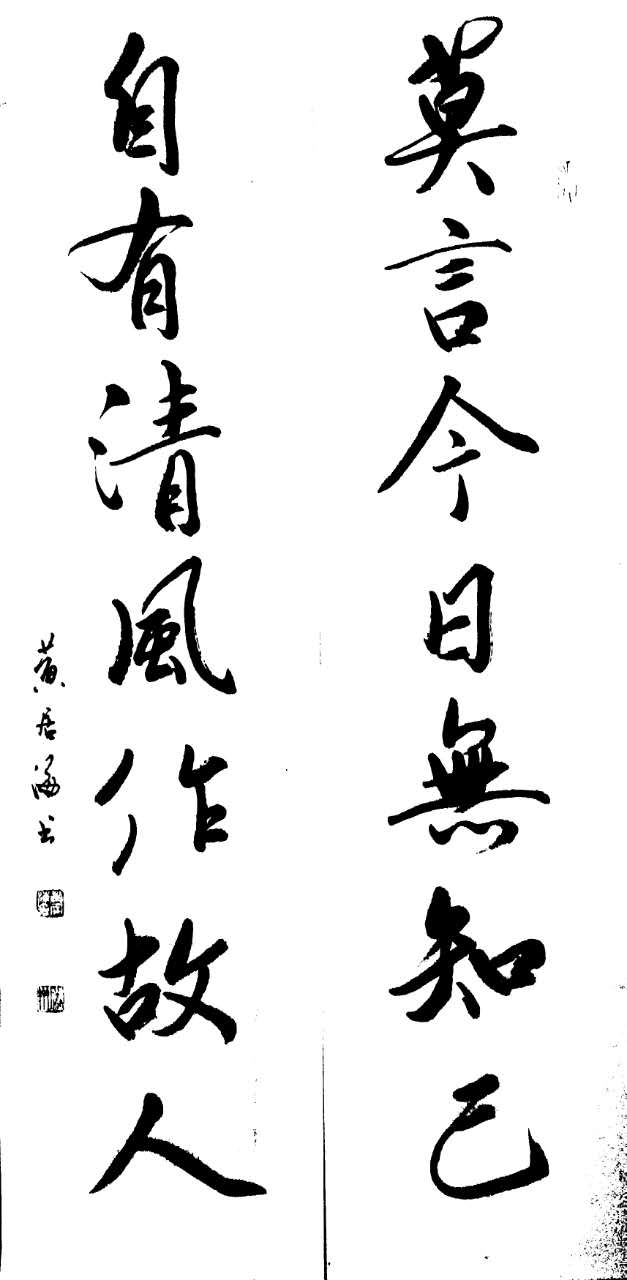 莫言今日無知己
自有清風作故人
黃居海書